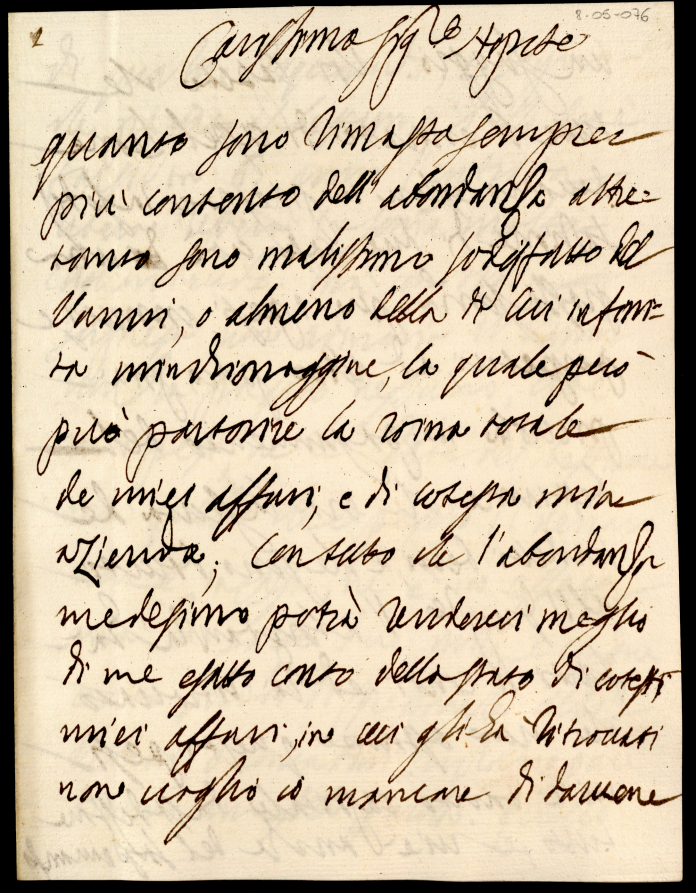 8-05-076
Carissimo Sig.re Nipote
quanto sono rimasto sempre
più contento dell'abondanza altre=
tanto sono malissimo sodisfatto del
Vanni, o almeno della di lui infini=
ta minchionaggine, la quale però
può partorire la roina totale
de miei affari, e di cotesta mia
azienda; Con tutto che l'abondanza
medesimo potrà renderci meglio
di me esatto conto dello stato di cotesti
miei affari, in cui gli hà ritrovati
non voglio io mancare di darvene